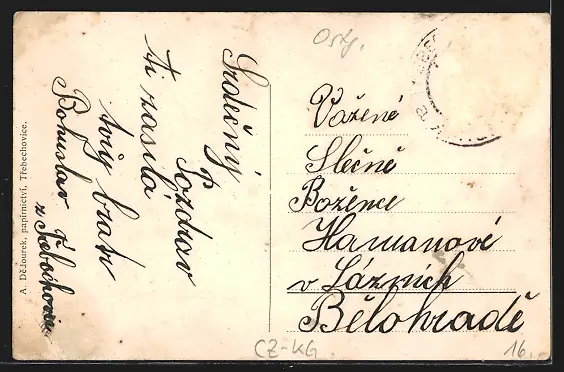 A. Dědourek, papírnictví, Třebechovice.
Srdečný
Pozdrav
ti zasílá
tvůj bratr
Bohuslav
z Třebechovic
Ostg.
Važené
Slečně
Boženě
Hamanové
v Lázních
Bělohradě
CZ-KG
16.